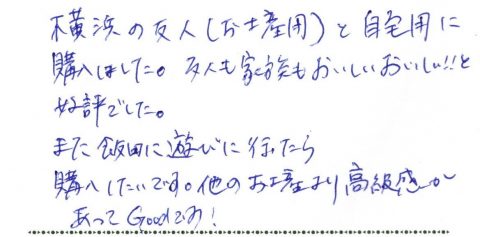 横浜の友人(お土産用)と自宅用に
購入しました。友人も家族もおいしいおいしい!!と
好評でした。
また飯田に遊びに行ったら
購入したいです。他のお土産より高級感が
あってGoodです!